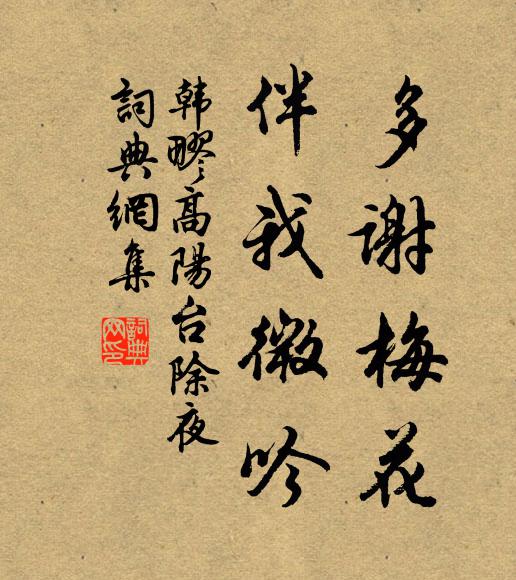 多谢梅花
伴我微吟
韩疁高陽台除夜
詞典網集
詞典網印